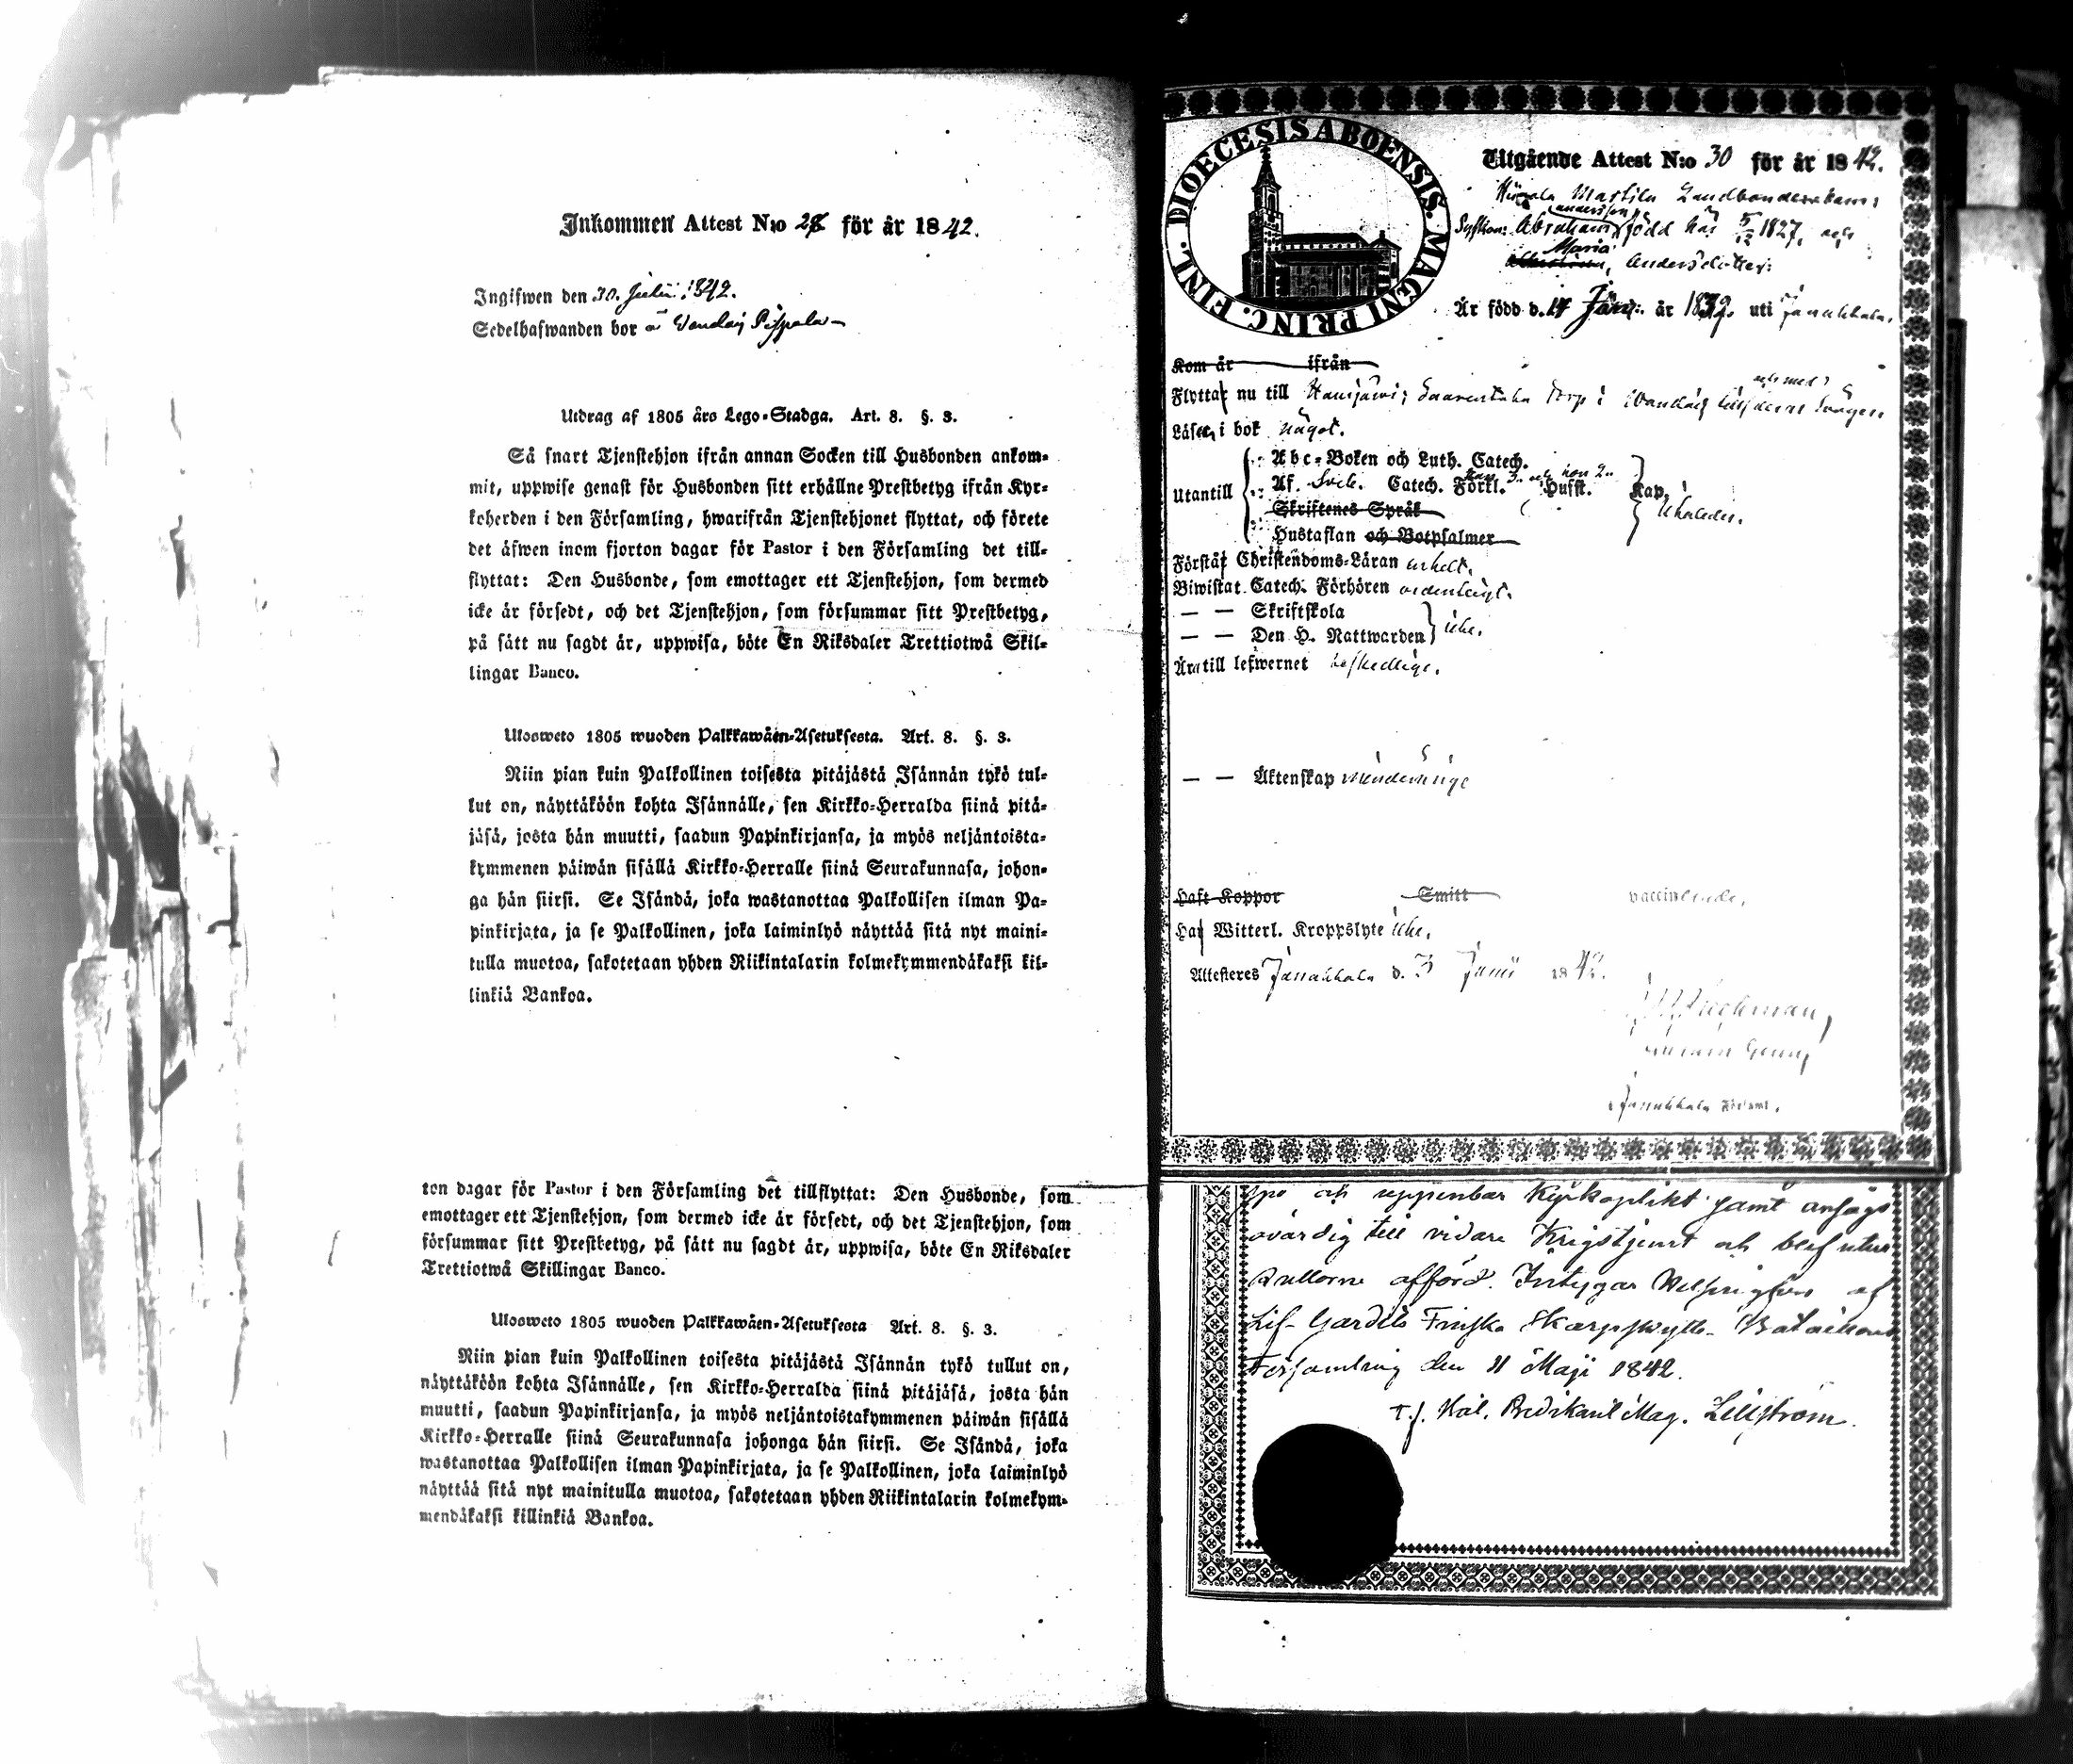 Inkommen Attest N:o 28 för år 1842.
Ingifwen den 30. Julii 1842.
Sedelhafwanden bor å Wandaij Pispala
Utdrag af 1805 års Lego-Stadga. Art. 8. §. 3.
Så snart Tjenstehjon ifrån annan Socken till Husbonden ankom-
mit, uppwise genast för Husbonden sitt erhållne Prestbetyg ifrån Kyr-
koherden i den Församling, hwarifrån Tjenstehjonet flyttat, och förete
det äfwen inom fjorton dagar för Pastor i den Församling det till-
flyttat: Den Husbonde, som emottager ett Tjenstehjon, som dermed
icke är försedt, och det Tjenstehjon, som försummar sitt Prestbetyg,
på sätt nu sagdt är, uppwisa, böte En Riksdaler Trettiotwå Skil-
lingar Banco.
Ulosweto 1805 wuoden Palkkawäen-Asetuksesta. Art. 8. §. 3.
Niin pian kuin Palkollinen toisesta pitäjästä Isännän tykö tul-
lut on, näyttäköön kohta Isännälle, sen Kirkko-Herralda siinä pitä-
jäsä, josta hän muutti, saadun Papinkirjansa, ja myös neljäntoista-
kymmenen päiwän sisällä Kirkko-Herralle siinä Seurakunnasa, johon-
ga hän siirsi. Se Isändä, joka wastanottaa Palkollisen ilman Pa-
pinkirjata, ja se Palkollinen, joka laiminlyö näyttää sitä nyt maini-
tulla muotoa, sakotetaan yhden Riikintalarin kolmekymmendäkaksi kil-
linkiä Bankoa.
ton dagar för Pastor i den Församling det tillflyttat: Den Husbonde, som
emottager ett Tjenstehjon, som dermed icke är försedt, och det Tjenstehjon, som
försummar sitt Prestbetyg, på sätt nu sagdt är, uppwisa, böte En Riksdaler
Trettiotwå Skillingar Banco.
Ulosweto 1805 wuoden Palkkawäen-Asetuksesta Art. 8. §. 3.
Niin pian kuin Palkollinen toisesta pitäjästä Isännän tykö tullut on,
näyttäköön kohta Isännälle, sen Kirkko-Herralda siinä pitäjäsä, josta hän
muutti, saadun Papinkirjansa, ja myös neljäntoistakymmenen päiwän sisällä
Kirkko-Herralle siinä Seurakunnasa johonga hän siirsi. Se Isändä, joka
wastanottaa Palkollisen ilman Papinkirjata, ja se Palkollinen, joka laiminlyö
näyttää sitä nyt mainitulla muotoa, sakotetaan yhden Riikintalarin kolmekym-
mendäkaksi killinkiä Bankoa.
DIOECESIS ABOENSIS. MAGNI PRINC. FINL.
Utgående Attest N:o 30 för år 1842.
Mattila Landbonde
andersson
Syskon: Abraham född här 5/12 1827, och
Maria
Andersdotter:
Är född d. 14 Janu: år 1832. uti Janakkala.
Kom år ifrån
och med
Flyttar nu till Hausjärwi; Torp i Wandaij
Läser i bok något.
Utantill
Abc-Boken och Luth. Catech.
Af. Sveb. Catech. Förkl. 3. och hon 2. Hufst. Kap.
Skriftenes Språk
Hustaflan och Botpsalmer
Förstår Christendoms-Läran enkelt.
Biwistat Catech. Förhören ordentligt.
— — Skriftskola
— — Den H. Nattwarden icke.
Är till lefwernet beskedlige.
— — Äktenskap minderårige
Haft Koppor Smitt vaccinerade.
Har Witterl. Kroppslyte icke.
Attesteres Janakkala d. 3 Junii 1842.
Janakkala Församl.
och uppenbar Kyrkoplikt samt ansågs
ovärdig till vidare Krigstjenst och blef utur
Rullorne afförd. Intygar Helsingfors af
Lif-Gardets Finska Skarpskytte-Bataillons
Församling den 11 Maji 1842.
T.f. Bat. Predikant Mag. Lillström.